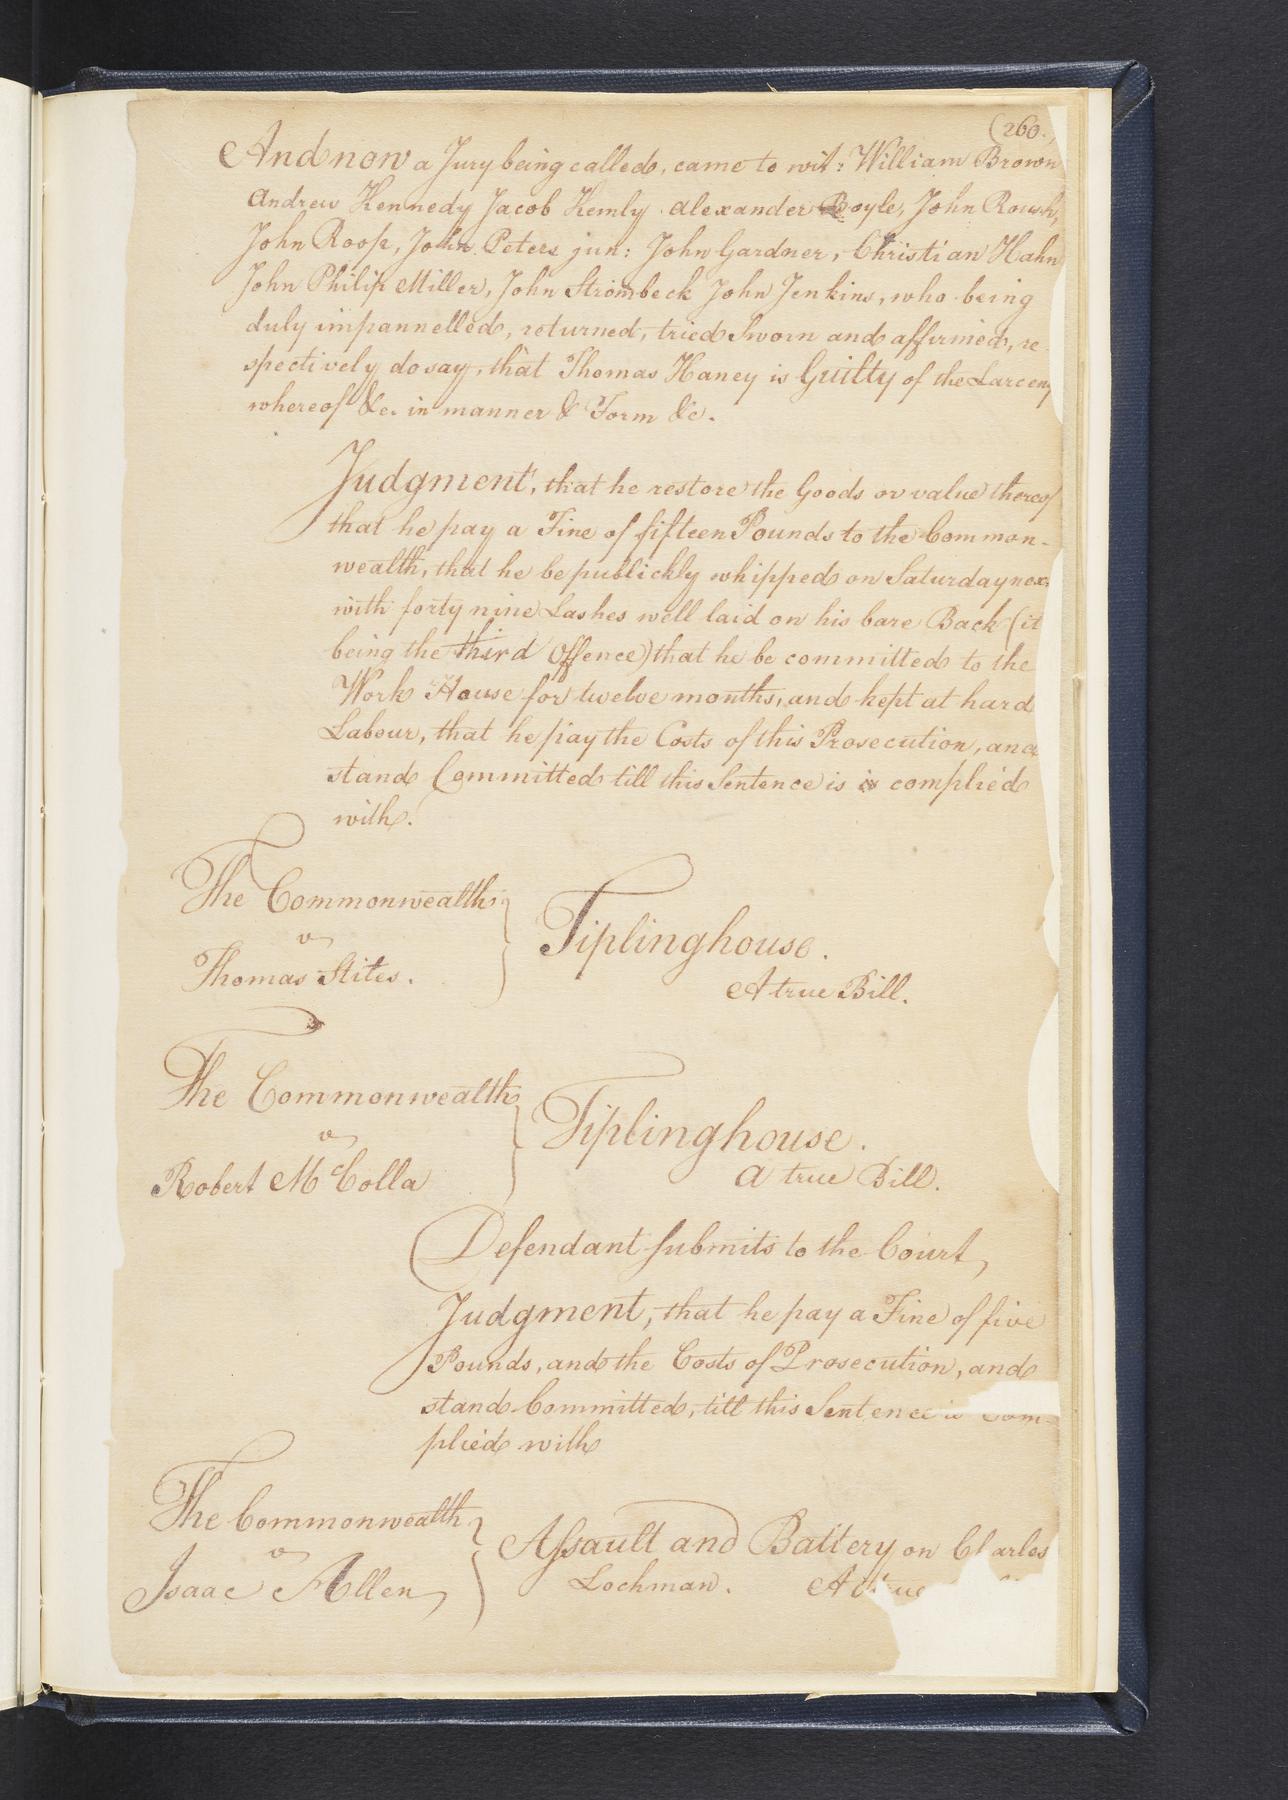 (260.)
And now a Jury being called, came to wit: William Brown
Andrew Kennedy Jacob Kemly Alexander Boyle, John Roush,
John Roop, John Peters jun: John Gardner, Christian Hahn
John Philip Miller, John Strombeck John Jenkins, who being
duly impannelled, returned, tried Sworn and affirmed, re-
spectively do say, that Thomas Haney is Guilty of the Larceny
whereof &c. in manner & Form &c.
Judgment, that he restore the Goods or value thereof
that he pay a Fine of fifteen Pounds to the Common-
wealth, that he be publickly whipped on Saturday nex
with forty nine Lashes well laid on his bare Back (it
being the third Offence) that he be committed to the
Work House for twelve months, and kept at hard
Labour, that he pay the Costs of this Prosecution, and
stand Committed till this Sentence is is complied
with.
The Commonwealth
v
Thomas Stites.
Tiplinghouse.
A true Bill.
The Commonwealth
v
Robert McColla
Tiplinghouse.
a true Bill.
Defendant submits to the Court,
Judgment, that he pay a Fine of five
Pounds, and the Costs of Prosecution, and
stand Committed, till this Sentence is Com-
plied with
The Commonwealth
v
Isaac Allen
Assault and Battery on Charles
Lochman. A true